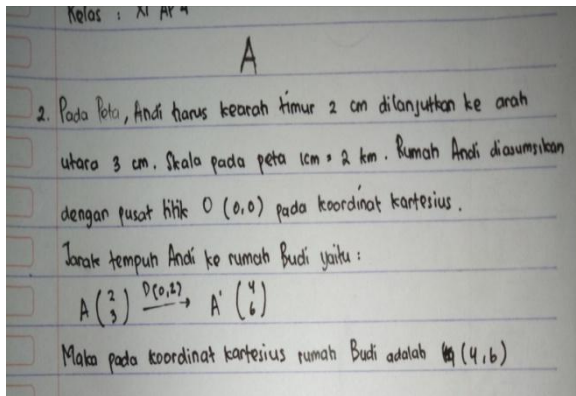 Kelas : XI AP 4
A
2. Pada Peta, Andi harus kearah timur 2 cm dilanjutkan ke arah
utara 3 cm. Skala pada peta 1cm = 2 km. Rumah Andi diasumsikan
dengan pusat titik O (0,0) pada koordinat kartesius.
Jarak tempuh Andi ke rumah Budi yaitu :
A (2 3) D(0,2) → A' (4 6)
Maka pada koordinat kartesius rumah Budi adalah (4,6)